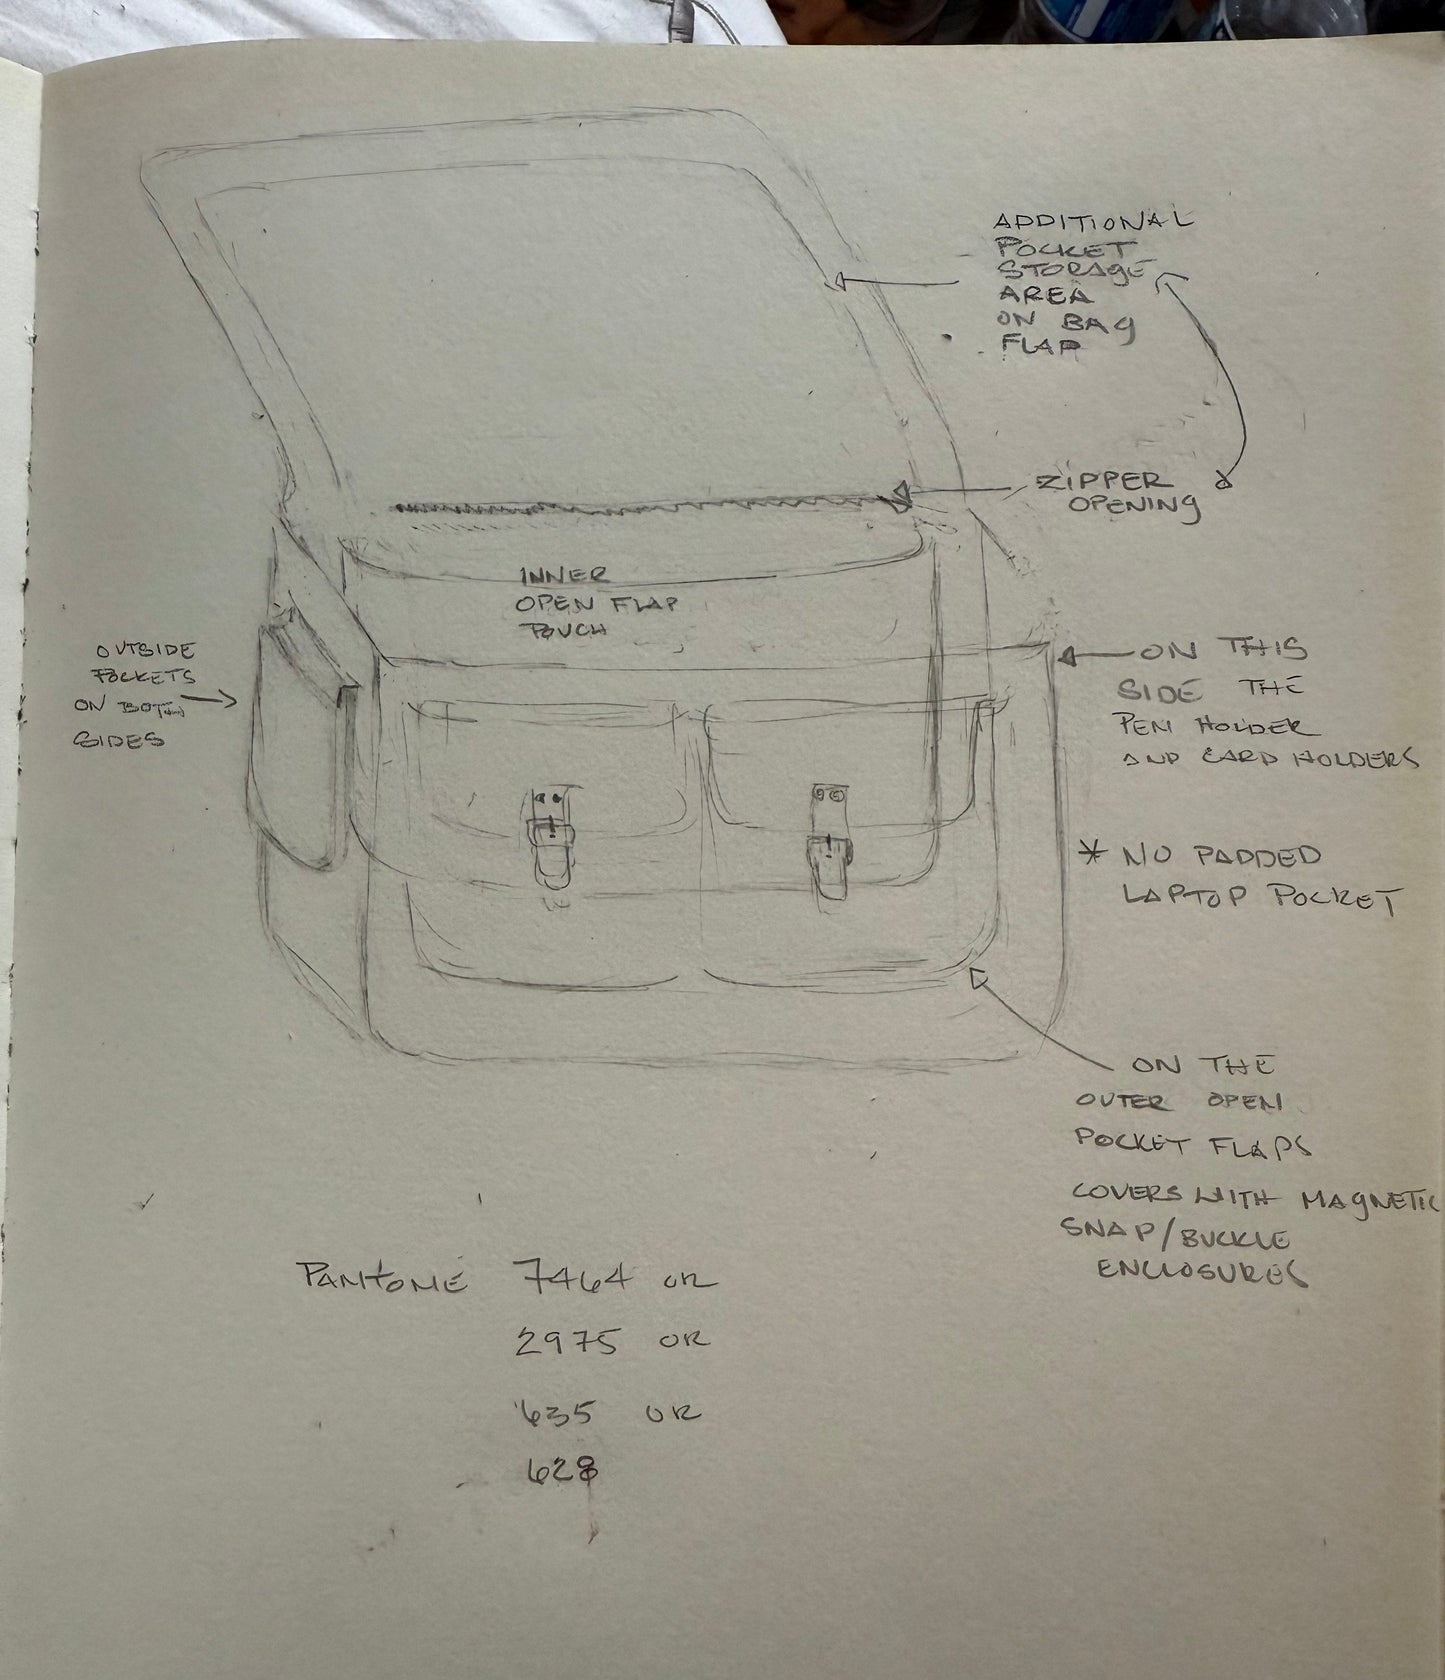 ADDITIONAL
POCKET
STORAGE
AREA
ON BAG
FLAP
ZIPPER
OPENING
INNER
OPEN FLAP
POUCH
OUTSIDE
POCKETS
ON BOTH
SIDES
ON THIS
SIDE THE
PEN HOLDER
AND CARD HOLDERS
* NO PADDED
LAPTOP POCKET
ON THE
OUTER OPEN
POCKET FLAPS
COVERS WITH MAGNETIC
SNAP/BUCKLE
ENCLOSURES
PANTONE 7464 OR
2975 OR
635 OR
628